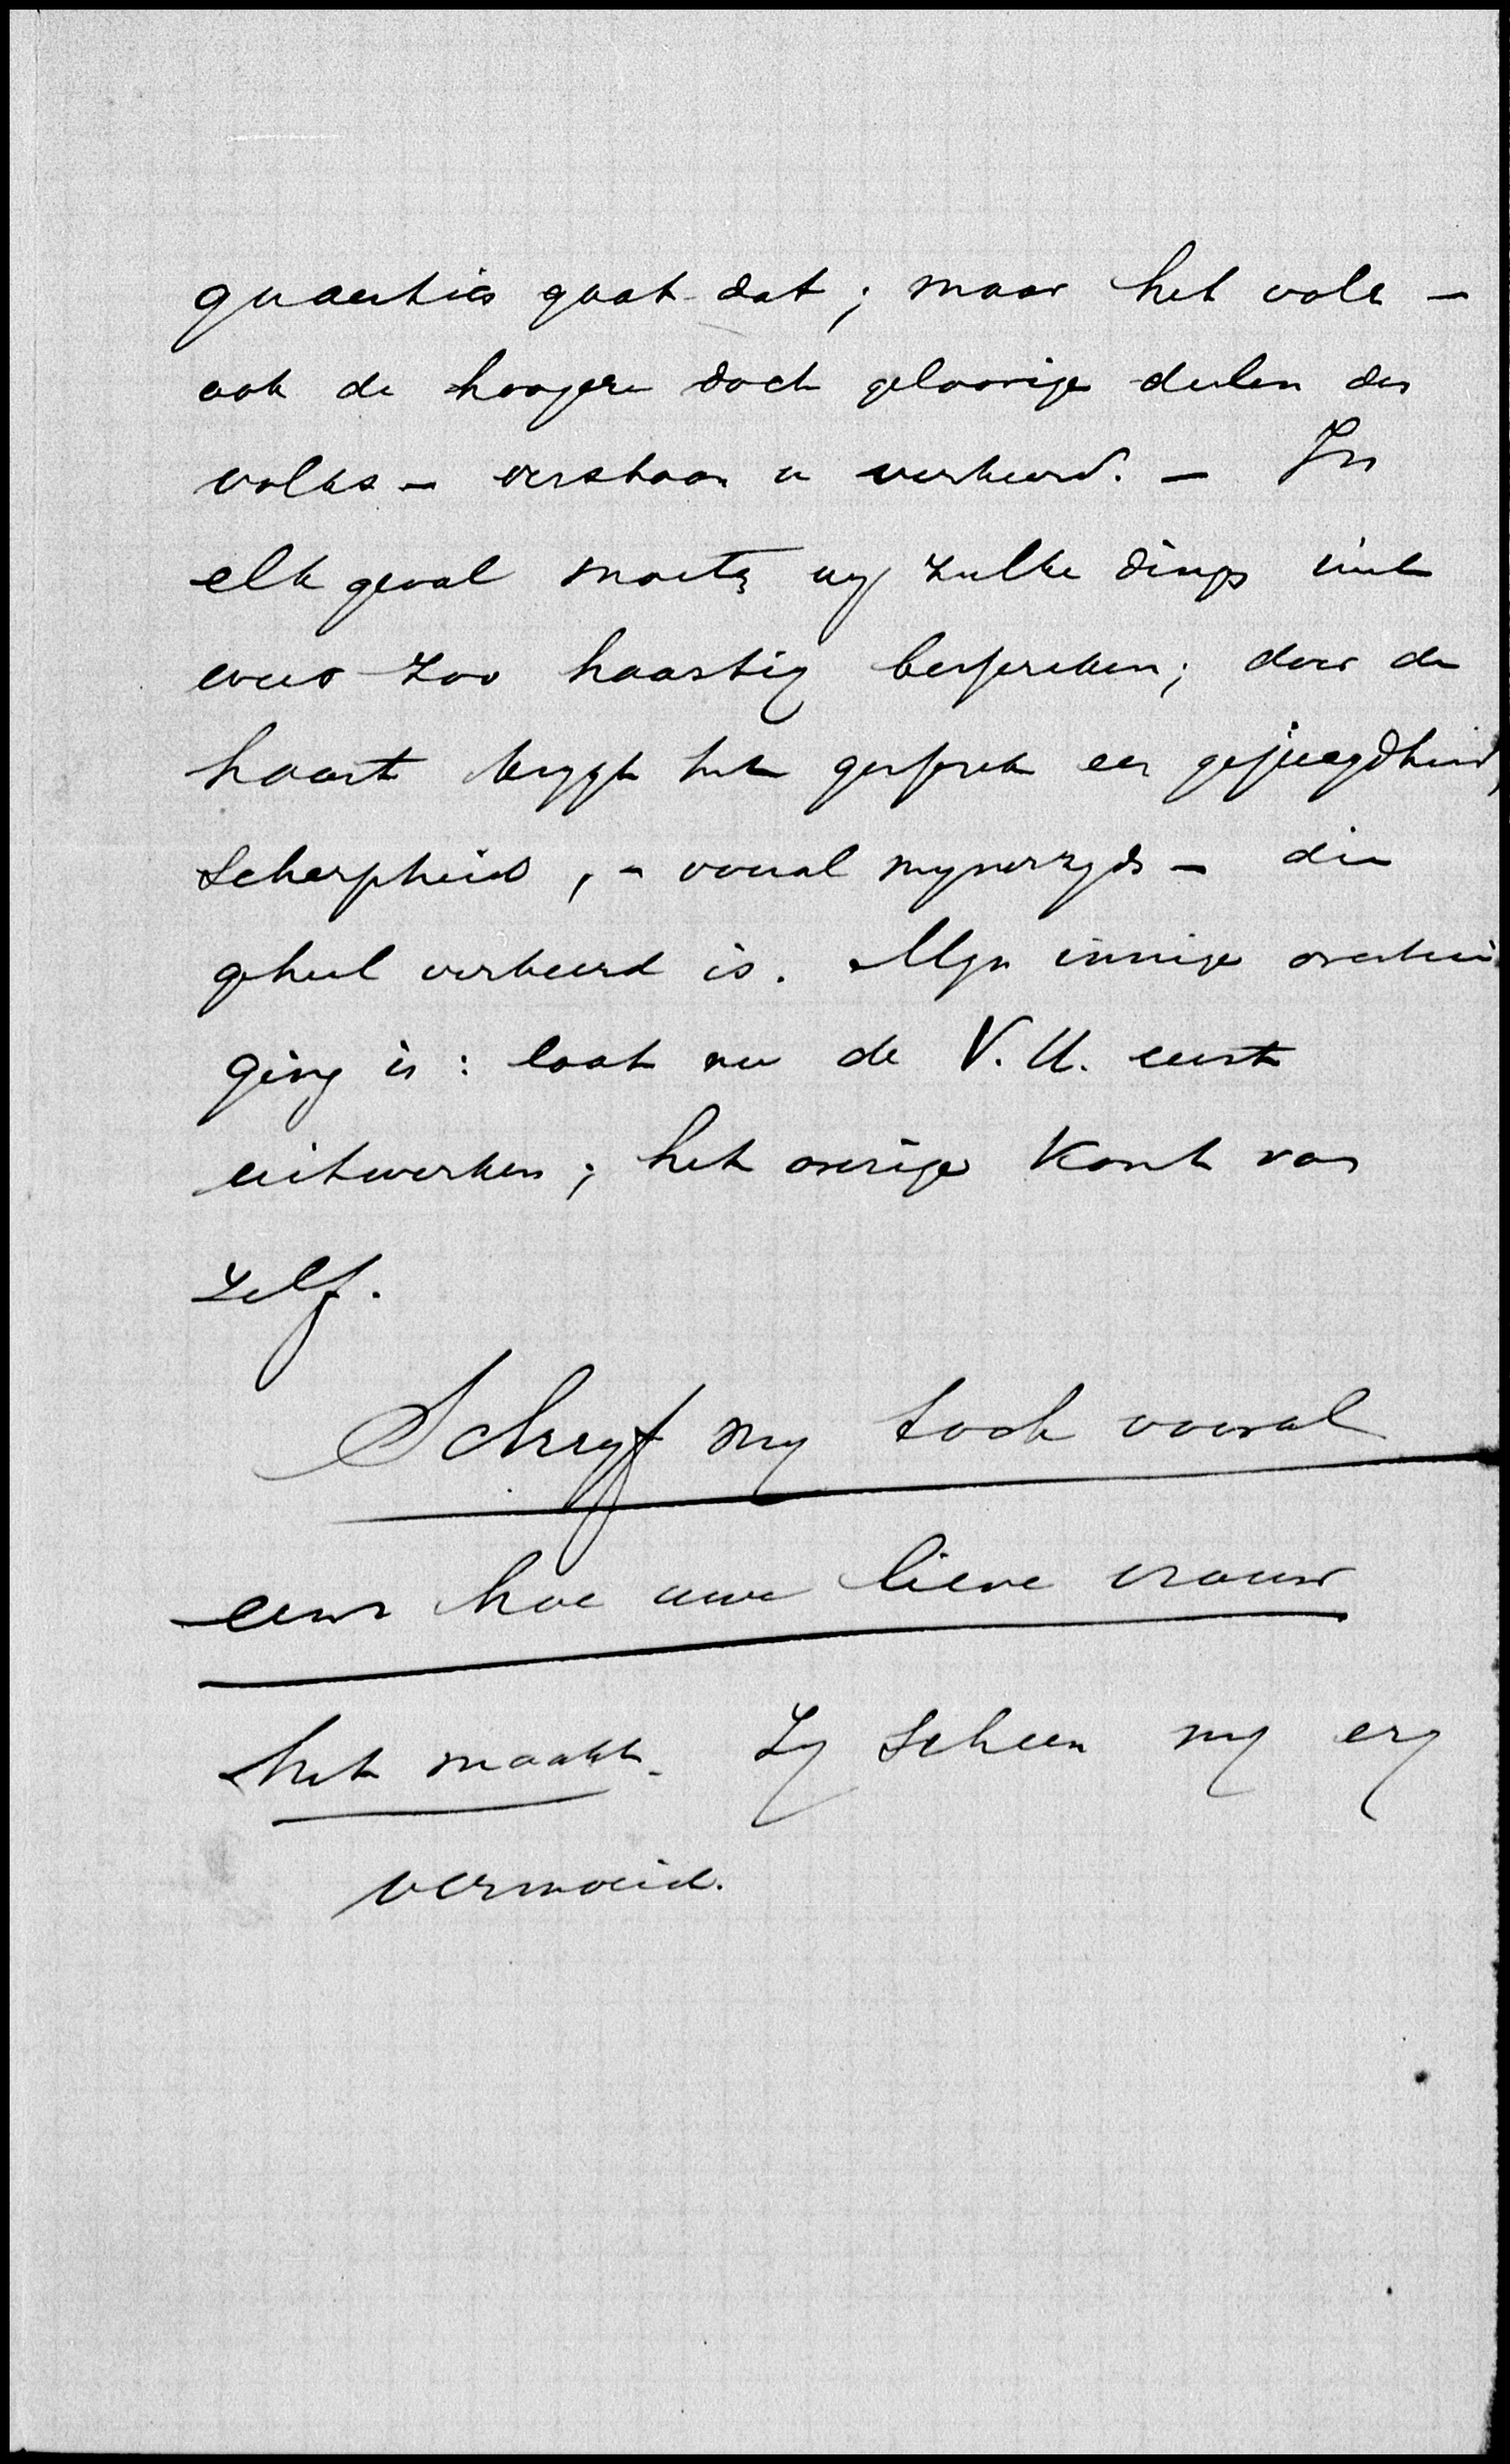 quaesties gaat dat; maar het volk –
ook de hoogere doch geloovige deelen des
volks – verstaan u verkeerd. – In
elk geval moeten wy zulke dingen niet
weer zoo haastig bespreken; door de
haast krygt het gesprek een gejaagdheid,
scherpheid, – vooral mynerzyds – die
geheel verkeerd is. Myn innige overtui
ging is: laat nu de V. U. eerst
uitwerken; het overige komt van
zelf.
Schryf my toch vooral
eens hoe uwe lieve vrouw
het maakt. Zy scheen my erg
vermoeid.